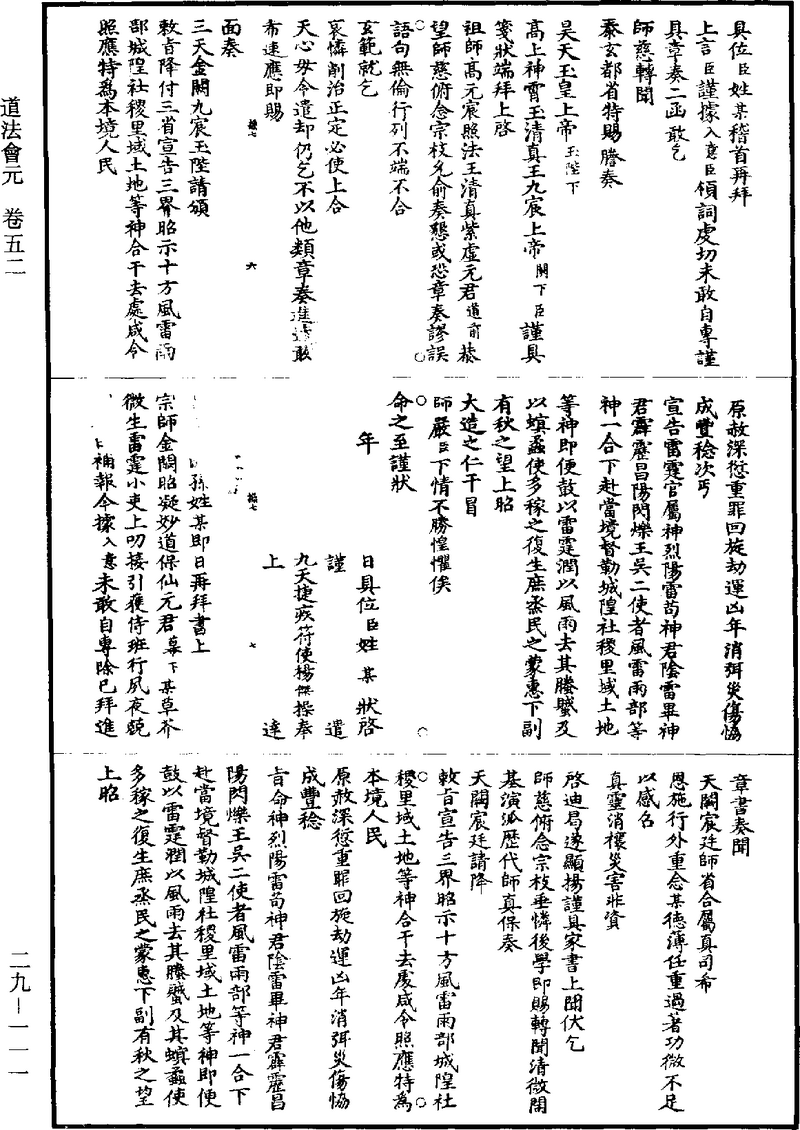 道法會元　卷五二
二九－一一一
具位臣姓某稽首再拜
上言臣謹據入意臣傾詞虔切未敢自專謹
具章奏二函敢乞
師慈轉聞
泰玄都省特賜謄奏
昊天玉皇上帝玉陛下
高上神霄玉清真王九宸上帝闕下臣謹具
箋狀端拜上啓
祖師高元宸照法王清真紫虛元君道前恭
望師慈俯念宗枝允俞奏懇或恐章奏謬誤
語句無倫行列不端不合
玄範就乞
哀憐削治正定必使上合
天心毋令遣却仍乞不以他類章奏進達敢
希速應即賜
面奏
三天金闕九宸玉陛請頒
敕旨降付三省宣告三界昭示十方風雷雨
部城隍社稷里域土地等神合干去處咸令
照應特為本境人民
六
原赦深愆重罪回旋劫運凶年消弭災傷恊
成豐稔次丐
宣告雷霆官屬神烈陽雷苟神君陰雷畢神
君霹靂昌陽閃爍王吳二使者風雷雨部等
神一合下赴當境督勒城隍社稷里域土地
等神即便鼓以雷霆潤以風雨去其螣蟘及
以蟥蟊使多稼之復生庶烝民之蒙惠下副
有秋之望上昭
大造之仁干冒
師嚴臣下情不勝惶懼俟
命之至謹狀
年　日具位臣姓某狀啓
謹遣
九天捷疾符使楊傑操奉
上達
七
孫姓某即日再拜書上
宗師金闕昭凝妙道保仙元君幕下某草芥
微生雷霆小吏上叨接引獲侍班行夙夜兢
補報今據入意未敢自專除已拜進
章書奏聞
天闕宸廷師省合屬真司希
恩施行外重念某德薄任重過著功微不足
以感召
真靈消禳災害非資
啓迪曷遂顯揚謹具家書上聞伏乞
師慈俯念宗枝垂憐後學即賜轉聞清微開
基演派歷代師真保奏
天闕宸廷請降
敕旨宣告三界昭示十方風雷雨部城隍社
稷里域土地等神合干去處咸令照應特為
本境人民
原赦深愆重罪回旋劫運凶年消弭災傷恊
成豐稔
旨命神烈陽雷苟神君陰雷畢神君霹靂昌
陽閃爍王吳二使者風雷雨部等神一合下
赴當境督勒城隍社稷里域土地等神即便
鼓以雷霆潤以風雨去其螣蟘及其蟥蟊使
多稼之復生庶烝民之蒙惠下副有秋之望
上昭